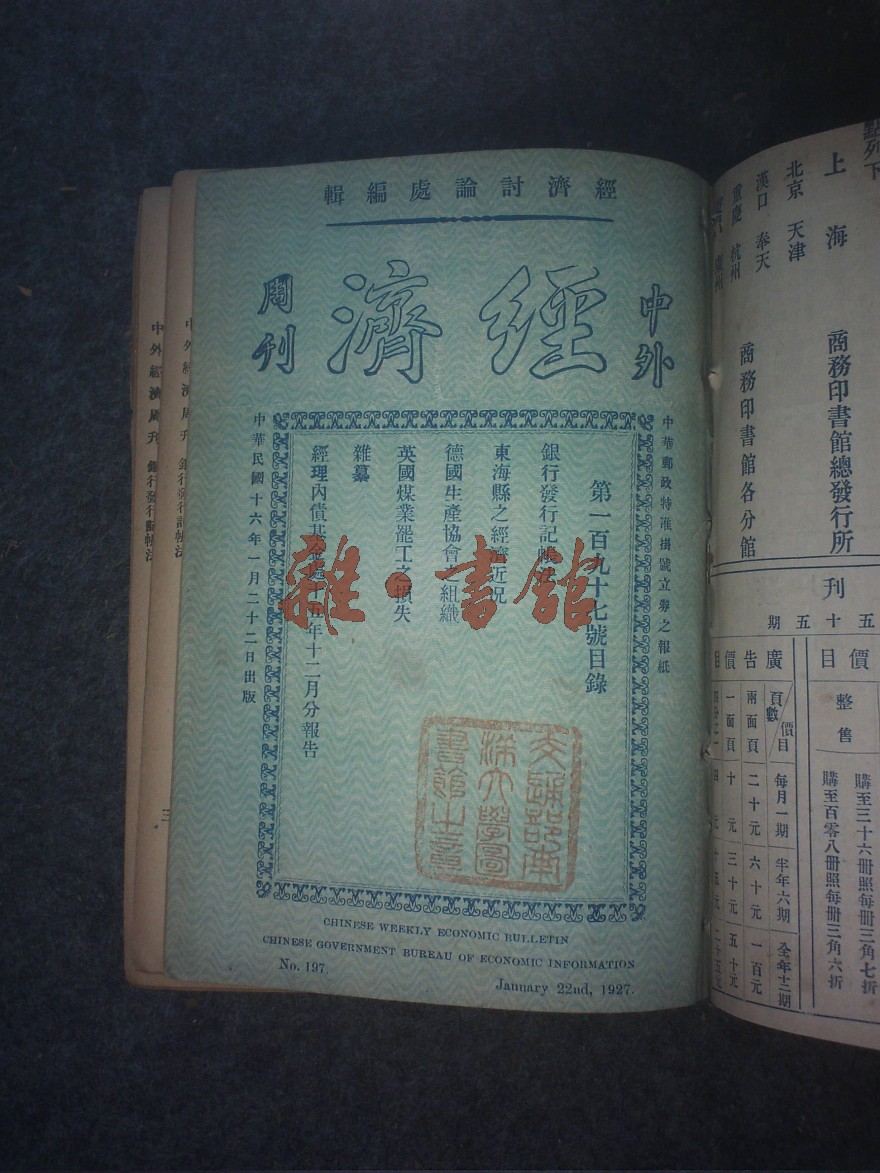 經濟討論處編輯
中外
經濟
周刊
中華郵政特准掛號立劵之報紙
第一百九十七號目錄
銀行發行記帳法
東海縣之經濟近況
德國生產協會之組織
英國煤業罷工之損失
雜纂
經理內債基金處十五年十二月分報告
中華民國十六年一月二十二日出版
雜·書館
交通部南
洋大學圖
書館之章
CHINESE WEEKLY ECONOMIC BULLETIN
CHINESE GOVERNMENT BUREAU OF ECONOMIC INFORMATION
No. 197.
January 22nd, 1927.
中外經濟周刊 銀行發行記帳法
中外經濟周刊 銀行發行記帳法
三
點列下
上海 商務印書館總發行所
北京 天津
漢口 奉天 商務印書館各分館
重慶 杭州
刊
五十五期
價目
整售
購至三十六冊照每冊三角七折
購至百零八冊照每冊三角六折
廣告價目
頁數 價目 每月一期 半年六期 全年十二期
兩面頁 二十元 六十元 一百元
一面頁 十元 三十元 五十元